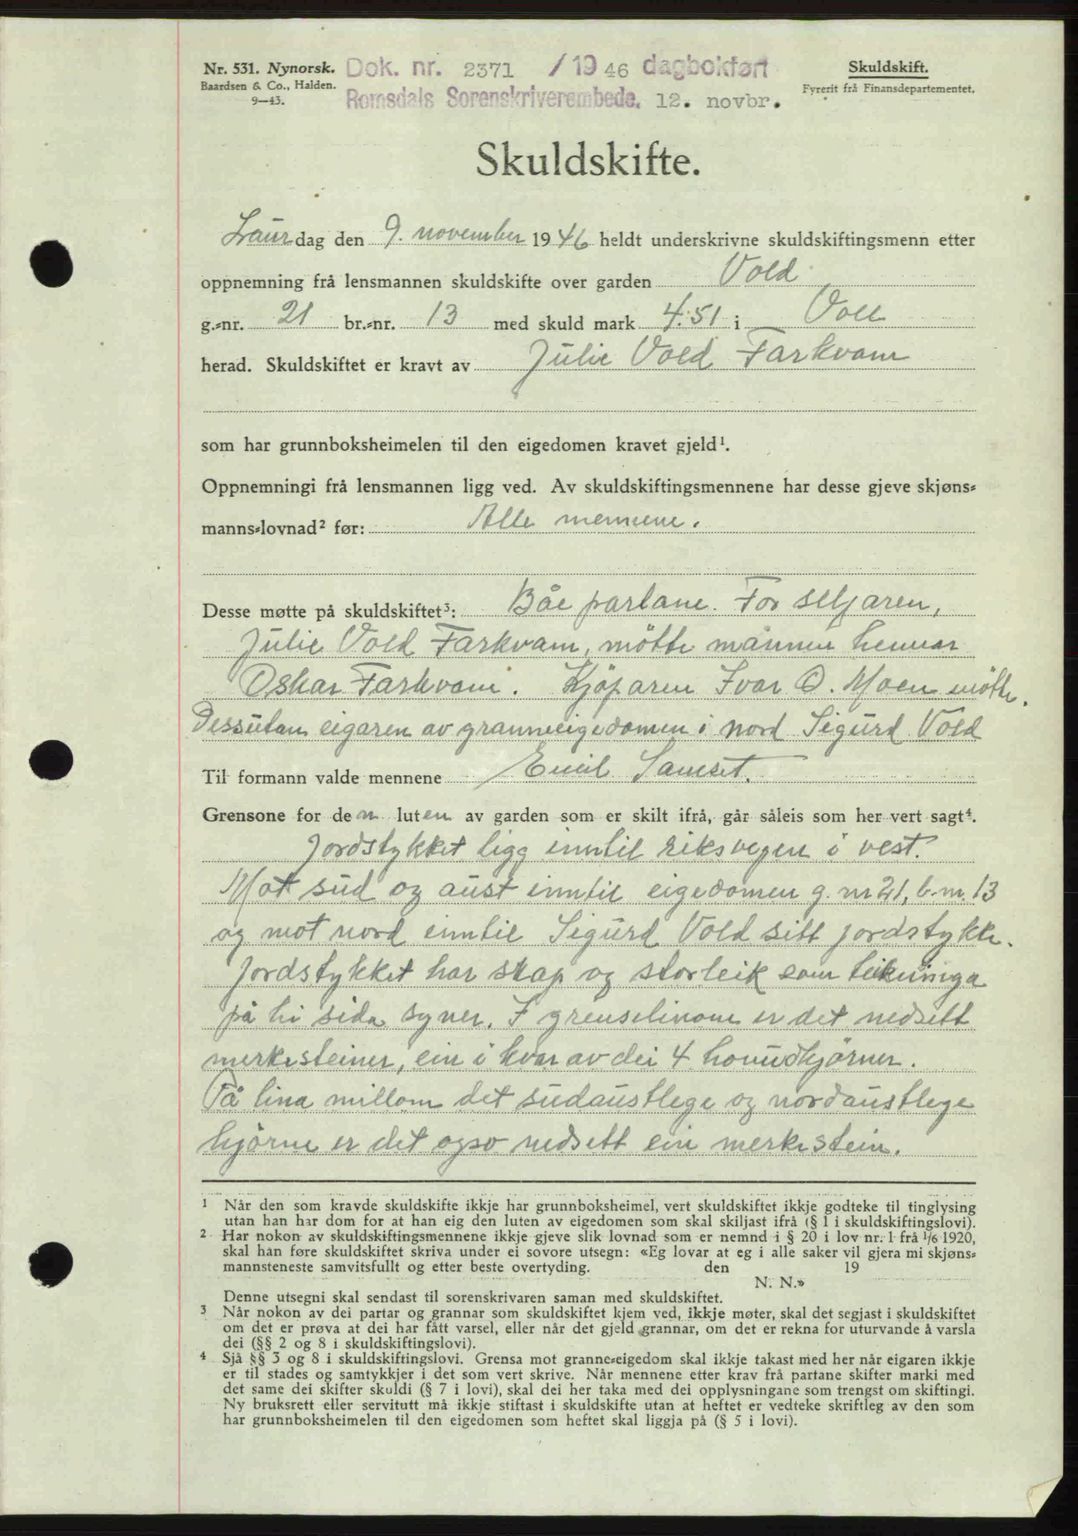 Nr. 531. Nynorsk.
Baardsen & Co., Halden.
9—43.
Dok. nr. 2371 /19 46 dagbokført
Romsdals Sorenskriverembede. 12. novbr.
Skuldskift.
Fyrerit frå Finansdepartementet.
Skuldskifte.
Laurdag den 9. november 1946 heldt underskrivne skuldskiftingsmenn etter
oppnemning frå lensmannen skuldskifte over garden Vold
g.=nr. 21 br.=nr. 13 med skuld mark 4.51 i Voll
herad. Skuldskiftet er kravt av Julie Vold Farkvam
som har grunnboksheimelen til den eigedomen kravet gjeld¹.
Oppnemningi frå lensmannen ligg ved. Av skuldskiftingsmennene har desse gjeve skjøns=
manns=lovnad² før: Alle mennene.
Desse møtte på skuldskiftet³: Båe partane. For seljaren,
Julie Vold Farkvam, møtte mannen hennar
Oskar Farkvam. Kjøparen Ivar O. Moen møtte.
Dessutan eigaren av granneeigedomen i nord Sigurd Vold
Til formann valde mennene Emil Samset.
Grensone for den luten av garden som er skilt ifrå, går såleis som her vert sagt⁴.
Jordstykket ligg inntil riksvegen i vest.
Mot sud og aust inntil eigedomen g. nr 21, b. nr. 13
og mot nord inntil Sigurd Vold sitt jordstykke.
Jordstykket har skap og storleik som teikninga
på hi sida syner. I grenselinone er det nedsett
merkesteiner, ein i kvar av dei 4 hovudhjørner.
På lina millom det sudaustlege og nordaustlege
hjørne er det også nedsett ein merkestein.
¹ Når den som kravde skuldskifte ikkje har grunnboksheimel, vert skuldskiftet ikkje godteke til tinglysing
utan han har dom for at han eig den luten av eigedomen som skal skiljast ifrå (§ 1 i skuldskiftingslovi).
² Har nokon av skuldskiftingsmennene ikkje gjeve slik lovnad som er nemnd i § 20 i lov nr. 1 frå 1/6 1920,
skal han føre skuldskiftet skriva under ei sovore utsegn: «Eg lovar at eg i alle saker vil gjera mi skjøns=
mannsteneste samvitsfullt og etter beste overtyding. den 19
N. N.»
Denne utsegni skal sendast til sorenskrivaren saman med skuldskiftet.
³ Når nokon av dei partar og grannar som skuldskiftet kjem ved, ikkje møter, skal det segjast i skuldskiftet
om det er prøva at dei har fått varsel, eller når det gjeld grannar, om det er rekna for uturvande å varsla
dei (§§ 2 og 8 i skuldskiftingslovi).
⁴ Sjå §§ 3 og 8 i skuldskiftingslovi. Grensa mot granne=eigedom skal ikkje takast med her når eigaren ikkje
er til stades og samtykkjer i det som vert skrive. Når mennene etter krav frå partane skifter marki med
det same dei skifter skuldi (§ 7 i lovi), skal dei her taka med dei opplysningane som trengst om skiftingi.
Ny bruksrett eller servitutt må ikkje stiftast i skuldskifte utan at heftet er vedteke skriftleg av den som
har grunnboksheimelen til den eigedomen som heftet skal liggja på (§ 5 i lovi).